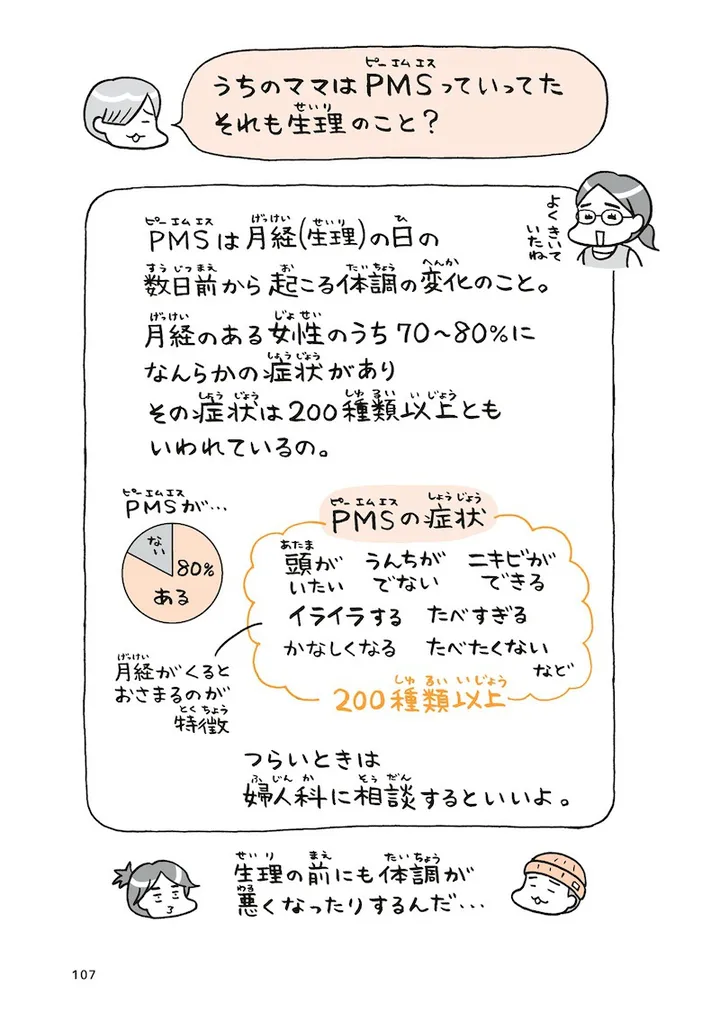 うちのママはPMSっていってた
それも生理のこと?
よくきいて
いたね
PMSは月経(生理)の日の
数日前から起こる体調の変化のこと。
月経のある女性のうち70〜80%に
なんらかの症状があり
その症状は200種類以上とも
いわれているの。
PMSが…
ない
80%
ある
月経がくると
おさまるのが
特徴
PMSの症状
頭が
いたい
うんちが
でない
ニキビが
できる
イライラする たべすぎる
かなしくなる たべたくない
など
200種類以上
つらいときは
婦人科に相談するといいよ。
生理の前にも体調が
悪くなったりするんだ…
107